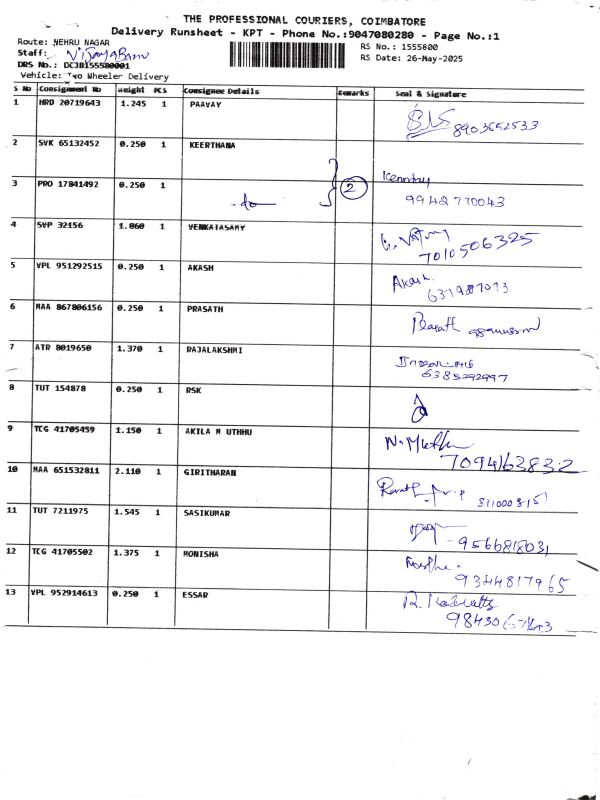 THE PROFESSIONAL COURIERS, COIMBATORE
Delivery Runsheet - KPT - Phone No.:9047080280 - Page No.:1
Route: NEHRU NAGAR
RS No.: 1555800
Staff: VijayaBanu
RS Date: 26-May-2025
DRS No.: DCJB155580001
Vehicle: Two Wheeler Delivery
S No Consignment No Weight PCS Consignee Details Remarks Seal & Signature
1 HRD 20719643 1.245 1 PAAVAY
8903652533
2 SVK 65132452 0.250 1 KEERTHANA
3 PRO 17841492 0.250 1 -do- 2 Kennedy
9942770043
4 SVP 32156 1.060 1 VENKATASAMY
7010506325
5 VPL 951292515 0.250 1 AKASH Akash
6 MAA 867806156 0.250 1 PRASATH Prasath
7 ATR 8019650 1.370 1 RAJALAKSHMI
6385292997
8 TUT 154878 0.250 1 RSK
9 TCG 41705459 1.150 1 AKILA M UTHHU N. Muthu
7094163832
10 MAA 651532811 2.110 1 GIRITHARAN
11 TUT 7211975 1.545 1 SASIKUMAR
9566818031
12 TCG 41705502 1.375 1 MONISHA
9344817965
13 VPL 952914613 0.250 1 ESSAR